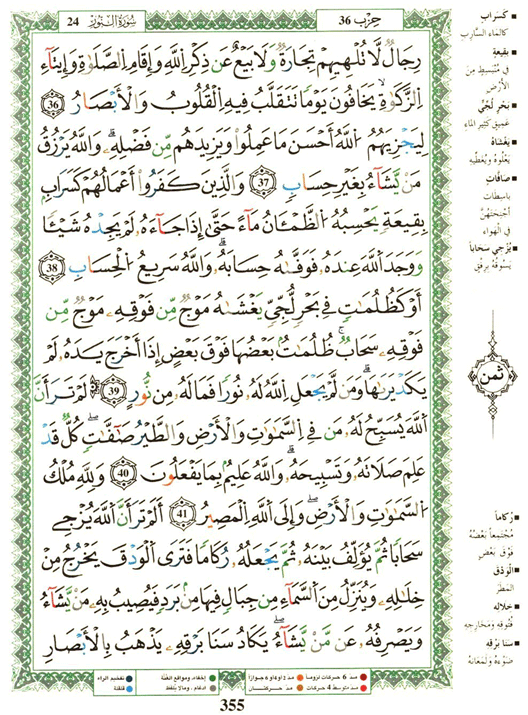 24 سُورَةُ النُّورِ
حِزْب 36
رِجَالٌ لَّا تُلْهِيهِمْ تِجَارَةٌ وَلَا بَيْعٌ عَن ذِكْرِ اللَّهِ وَإِقَامِ الصَّلَوٰةِ وَإِيتَآءِ
اِ۬لزَّكَوٰةِ يَخَافُونَ يَوْمًا تَتَقَلَّبُ فِيهِ اِ۬لْقُلُوبُ وَالْأَبْصَارُ 36
لِيَجْزِيَهُمُ اُ۬للَّهُ أَحْسَنَ مَا عَمِلُوا۟ وَيَزِيدَهُم مِّن فَضْلِهِۦ وَاللَّهُ يَرْزُقُ
مَنْ يَّشَآءُ بِغَيْرِ حِسَابٍ 37 وَالَّذِينَ كَفَرُوٓا۟ أَعْمَالُهُمْ كَسَرَابٍ
بِقِيعَةٍ يَحْسِبُهُ اُ۬لظَّمْـَٔانُ مَآءً حَتَّىٰٓ إِذَا جَآءَهُۥ لَمْ يَجِدْهُ شَيْـًٔا
وَوَجَدَ اَ۬للَّهَ عِندَهُۥ فَوَفَّىٰهُ حِسَابَهُۥ وَاللَّهُ سَرِيعُ اُ۬لْحِسَابِ 38
أَوْ كَظُلُمَٰتٍ فِي بَحْرٍ لُّجِّيٍّ يَغْشَىٰهُ مَوْجٌ مِّن فَوْقِهِۦ مَوْجٌ مِّن
فَوْقِهِۦ سَحَابٌ ظُلُمَٰتٌ بَعْضُهَا فَوْقَ بَعْضٍ إِذَآ أَخْرَجَ يَدَهُۥ لَمْ
يَكَدْ يَرَىٰهَا وَمَن لَّمْ يَجْعَلِ اِ۬للَّهُ لَهُۥ نُورًا فَمَا لَهُۥ مِن نُّورٍ 39 أَلَمْ تَرَ أَنَّ
اَ۬للَّهَ يُسَبِّحُ لَهُۥ مَن فِي اِ۬لسَّمَٰوَٰتِ وَالْأَرْضِ وَالطَّيْرُ صَٰٓفَّٰتٍ كُلٌّ قَدْ
عَلِمَ صَلَاتَهُۥ وَتَسْبِيحَهُۥ وَاللَّهُ عَلِيمٌۢ بِمَا يَفْعَلُونَ 40 وَلِلَّهِ مُلْكُ
اُ۬لسَّمَٰوَٰتِ وَالْأَرْضِ وَإِلَى اَ۬للَّهِ اِ۬لْمَصِيرُ 41 أَلَمْ تَرَ أَنَّ اَ۬للَّهَ يُزْجِي
سَحَابًا ثُمَّ يُؤَلِّفُ بَيْنَهُۥ ثُمَّ يَجْعَلُهُۥ رُكَامًا فَتَرَى اَ۬لْوَدْقَ يَخْرُجُ مِنْ
خِلَٰلِهِۦ وَيُنَزِّلُ مِنَ اَ۬لسَّمَآءِ مِن جِبَالٍ فِيهَا مِنۢ بَرَدٍ فَيُصِيبُ بِهِۦ مَنْ يَّشَآءُ
وَيَصْرِفُهُۥ عَن مَّنْ يَّشَآءُ يَكَادُ سَنَا بَرْقِهِۦ يَذْهَبُ بِالْأَبْصَٰرِ
كَسَرَابٍ
كالماء السّارب
بِقِيعَةٍ
في منبسط من
الأرض
بَحْرٍ لُجِّيٍّ
عميق كثير الماء
يَغْشَاهُ
يعلوه ويغطّيه
صَافَّاتٍ
باسطات
أجنحتهنّ
في الهواء
يُزْجِي سَحَاباً
يسوقه برفق
ثمن
رُكَاماً
مجتمعاً بعضه
فوق بعض
الْوَدْقَ
المطر
خِلَالِهِ
فتوقه ومخارجه
سَنَا بَرْقِهِ
ضوءه ولمعانه
مد 6 حركات لزوما مد 2 أو 4 أو 6 جوازا إخفاء، ومواقع الغنّة تفخيم الراء
مد متوسط 4 حركات مد حركتان ادغام ، ومالا يلفظ قلقلة
355